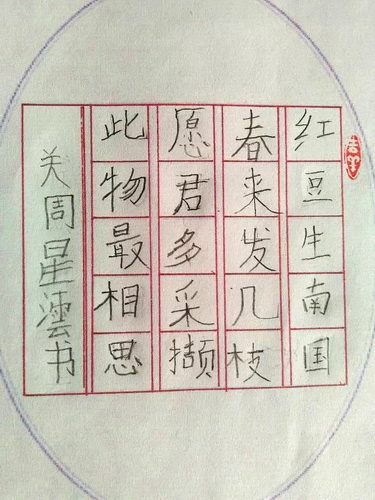 红豆生南国
春来发几枝
愿君多采撷
此物最相思
关周星澐书